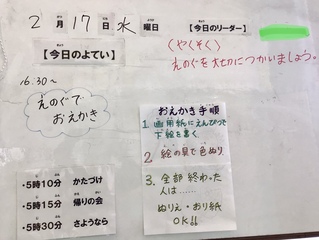 2月17日水曜日
【今日のリーダー】
【今日のよてい】
〈やくそく〉
えのぐを大切につかいましょう。
16:30~
えのぐで
おえかき
おえかき手順
1. 画用紙にえんぴつで
下絵を書く
2. 絵の具で色ぬり
3. 全部終わった
人は……
ぬりえ・おり紙
OK!!
・5時10分 かたづけ
・5時15分 帰りの会
・5時30分 さようなら